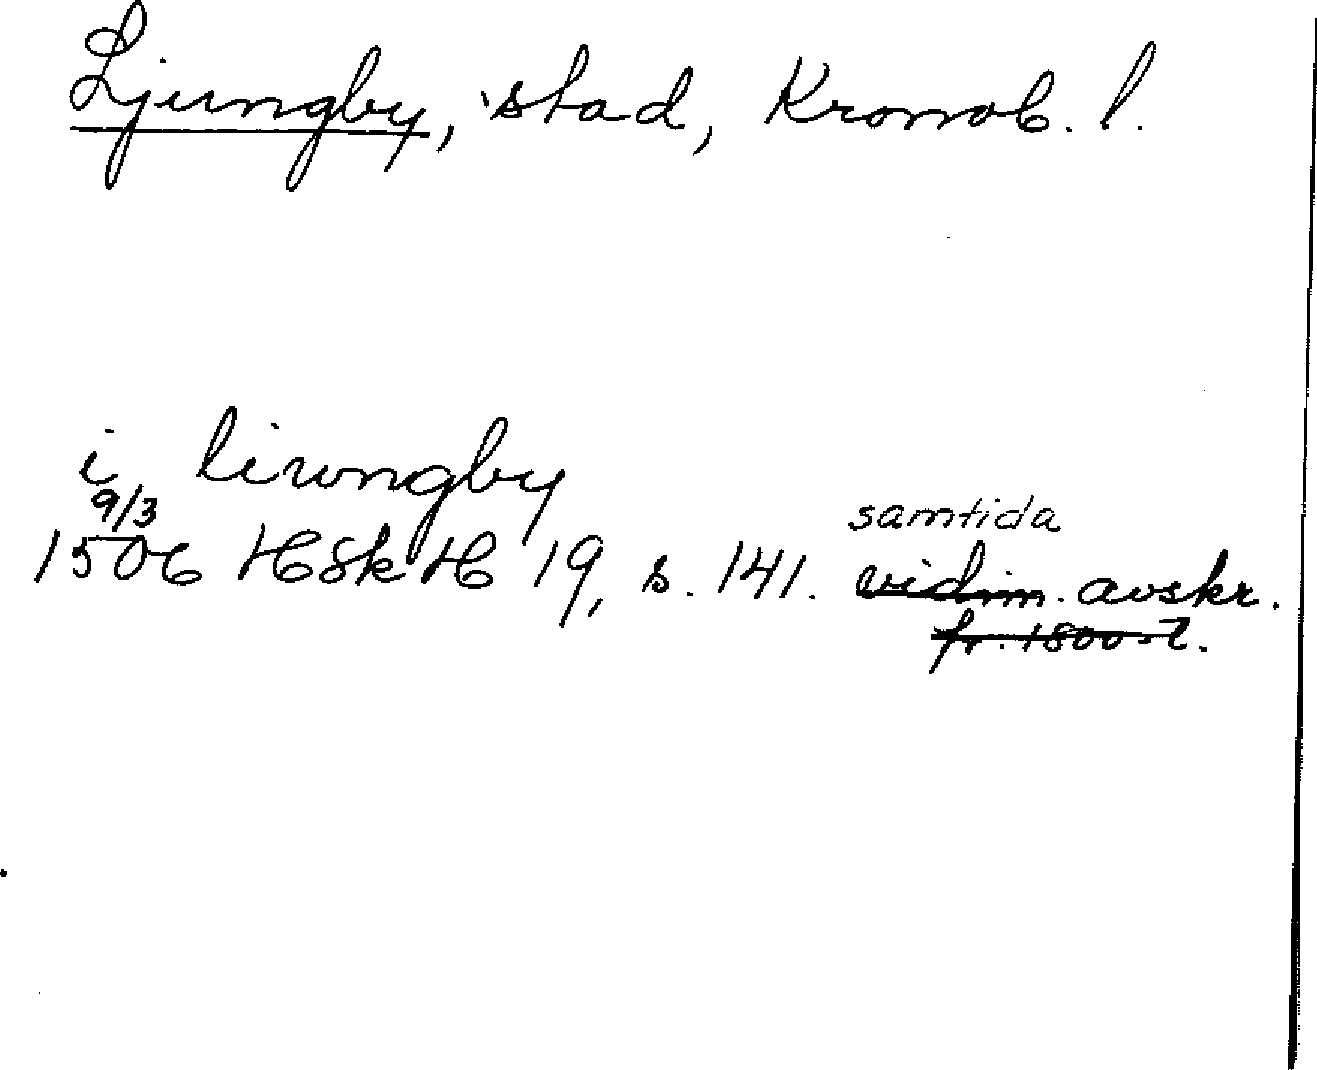 Ljungby, stad, Kronob. l.
i liwngby
9/3
samtida
1506 HSkH 19, s. 141. vidim. avskr.
fr. 1800-t.